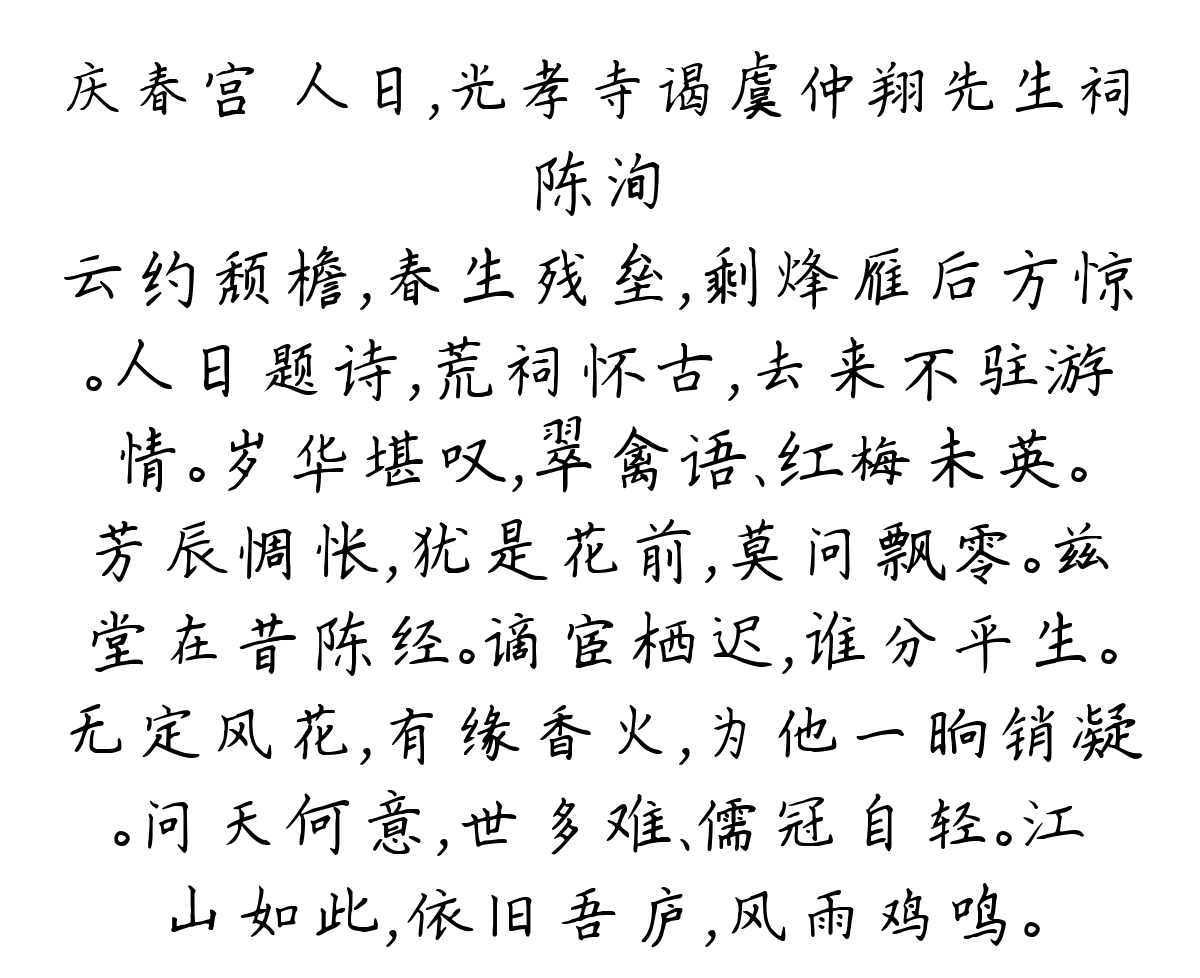 庆春宫 人日,光孝寺谒虞仲翔先生祠
陈洵
云约颓檐,春生残垒,剩烽雁后方惊
。人日题诗,荒祠怀古,去来不驻游
情。岁华堪叹,翠禽语、红梅未英。
芳辰惆怅,犹是花前,莫问飘零。兹
堂在昔陈经。谪宦栖迟,谁分平生。
无定风花,有缘香火,为他一晌销凝
。问天何意,世多难、儒冠自轻。江
山如此,依旧吾庐,风雨鸡鸣。